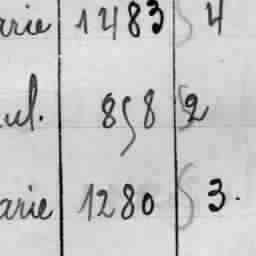 arie 1483 4
ul. 858 2
arie 1280 3.